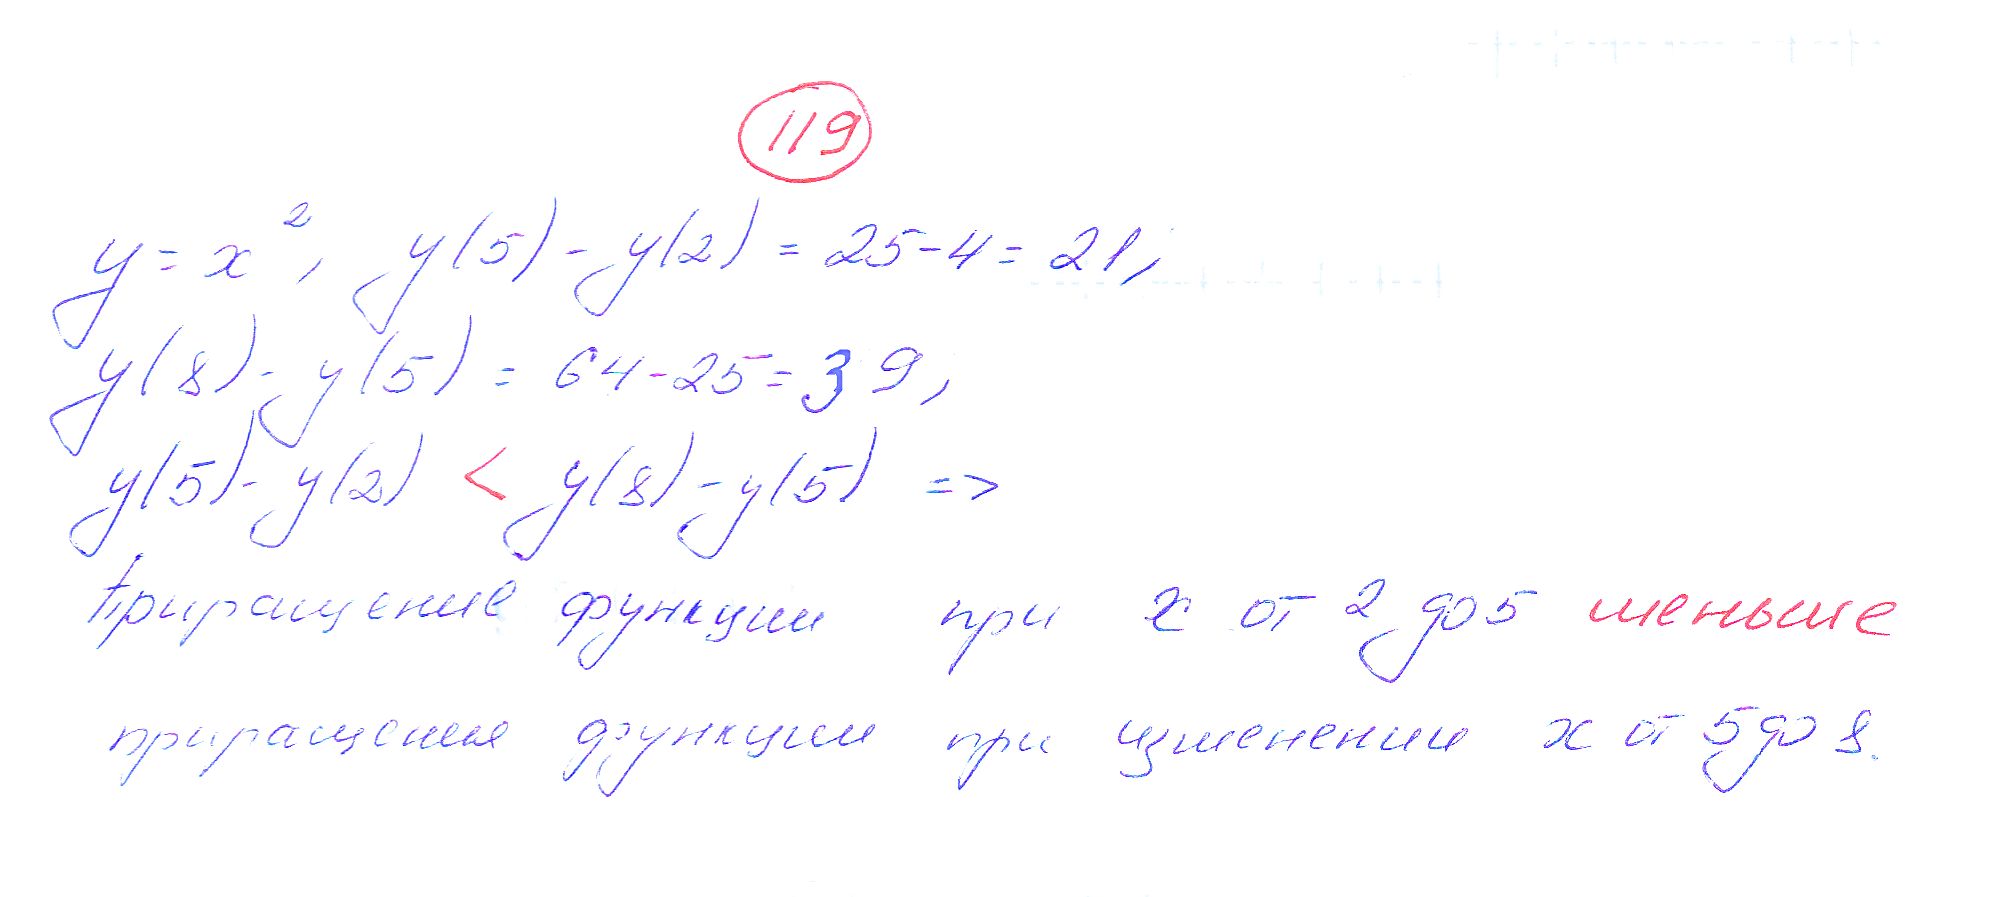 119
y = x², y(5) - y(2) = 25 - 4 = 21,
y(8) - y(5) = 64 - 25 = 39,
y(5) - y(2) < y(8) - y(5) =>
Приращение функции при x от 2 до 5 меньше
приращения функции при изменении x от 5 до 8.